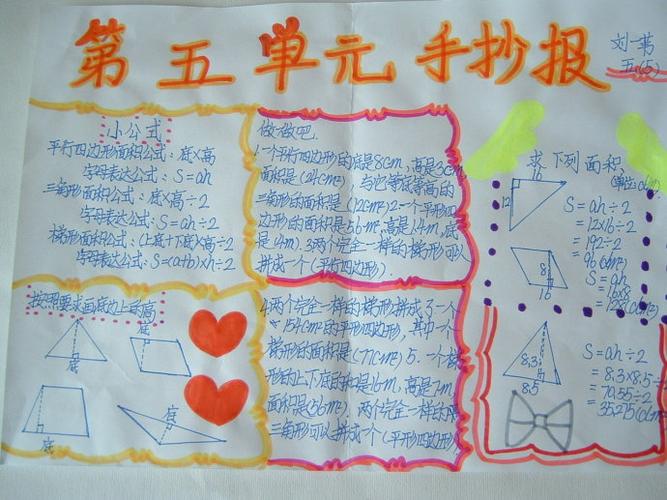 第五单元手抄报
刘一
五(5)
小公式
平行四边形面积公式：底×高
字母表达公式：S=ah
三角形面积公式：底×高÷2
字母表达公式：S=ah÷2
梯形面积公式：(上底+下底)×高÷2
字母表达公式：S=(a+b)×h÷2
做一做吧
1.一个平行四边形的底是8cm,高是3cm
面积是(24cm²) 与它等底等高的
三角形的面积是(12cm²)2.一个平行四
边形的面积是56m²,高是14m,底
是(4m) 3.两个完全一样的梯形可以
拼成一个(平行四边形).
求下列面积.
16
12
S=ah÷2
=12×16÷2
=192÷2
=96(dm²)
8
16
S=ah
=16×8
=128(dm²)
按照要求画底边上的高
底
底
底
底
4.两个完全一样的梯形拼成了一个
154cm²的平行四边形,其中一个
梯形的面积是(77cm²) 5.一个梯
形的上下底的和是16m,高是7m
面积是(56m²). 两个完全一样的
三角形可以拼成一个(平形四边形).
8.3
8.5
S=ah÷2
=8.3×8.5÷2
=70.55÷2
=35.275(dm²)